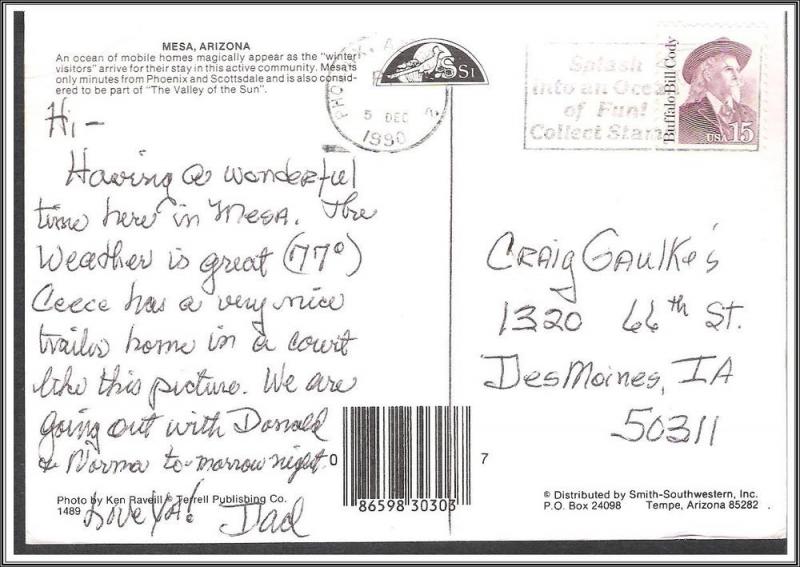 MESA, ARIZONA
An ocean of mobile homes magically appear as the "winter
visitors" arrive for their stay in this active community. Mesa is
only minutes from Phoenix and Scottsdale and is also consid-
ered to be part of "The Valley of the Sun".
Hi,-
Having a wonderful
time here in Mesa. The
Weather is great (77°)
Ceece has a very nice
trailer home in a court
like this picture. We are
going out with Donald
& Norma to-morrow night.
Love Ya! Dad
Photo by Ken Raveill © Terrell Publishing Co.
1489
SSI
5 DEC
1990
Splash
into an Ocean
of Fun!
Collect Stam
Buffalo Bill Cody
USA 15
Craig Gaulke's
1320 66th St.
Des Moines, IA
50311
0 86598 30303 7
© Distributed by Smith-Southwestern, Inc.
P.O. Box 24098 Tempe, Arizona 85282